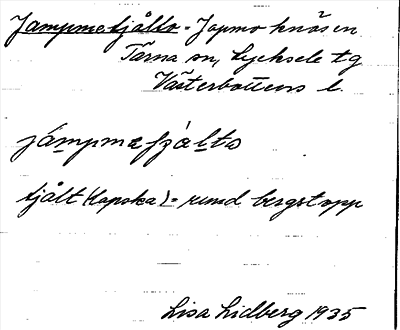 Jampmetjålto - Japmo knösen
Tärna sn, Lycksele tg
Västerbottens l.
jámpmetjålto
tjålt (lapska) = rund bergstopp
Lisa Lidberg 1935